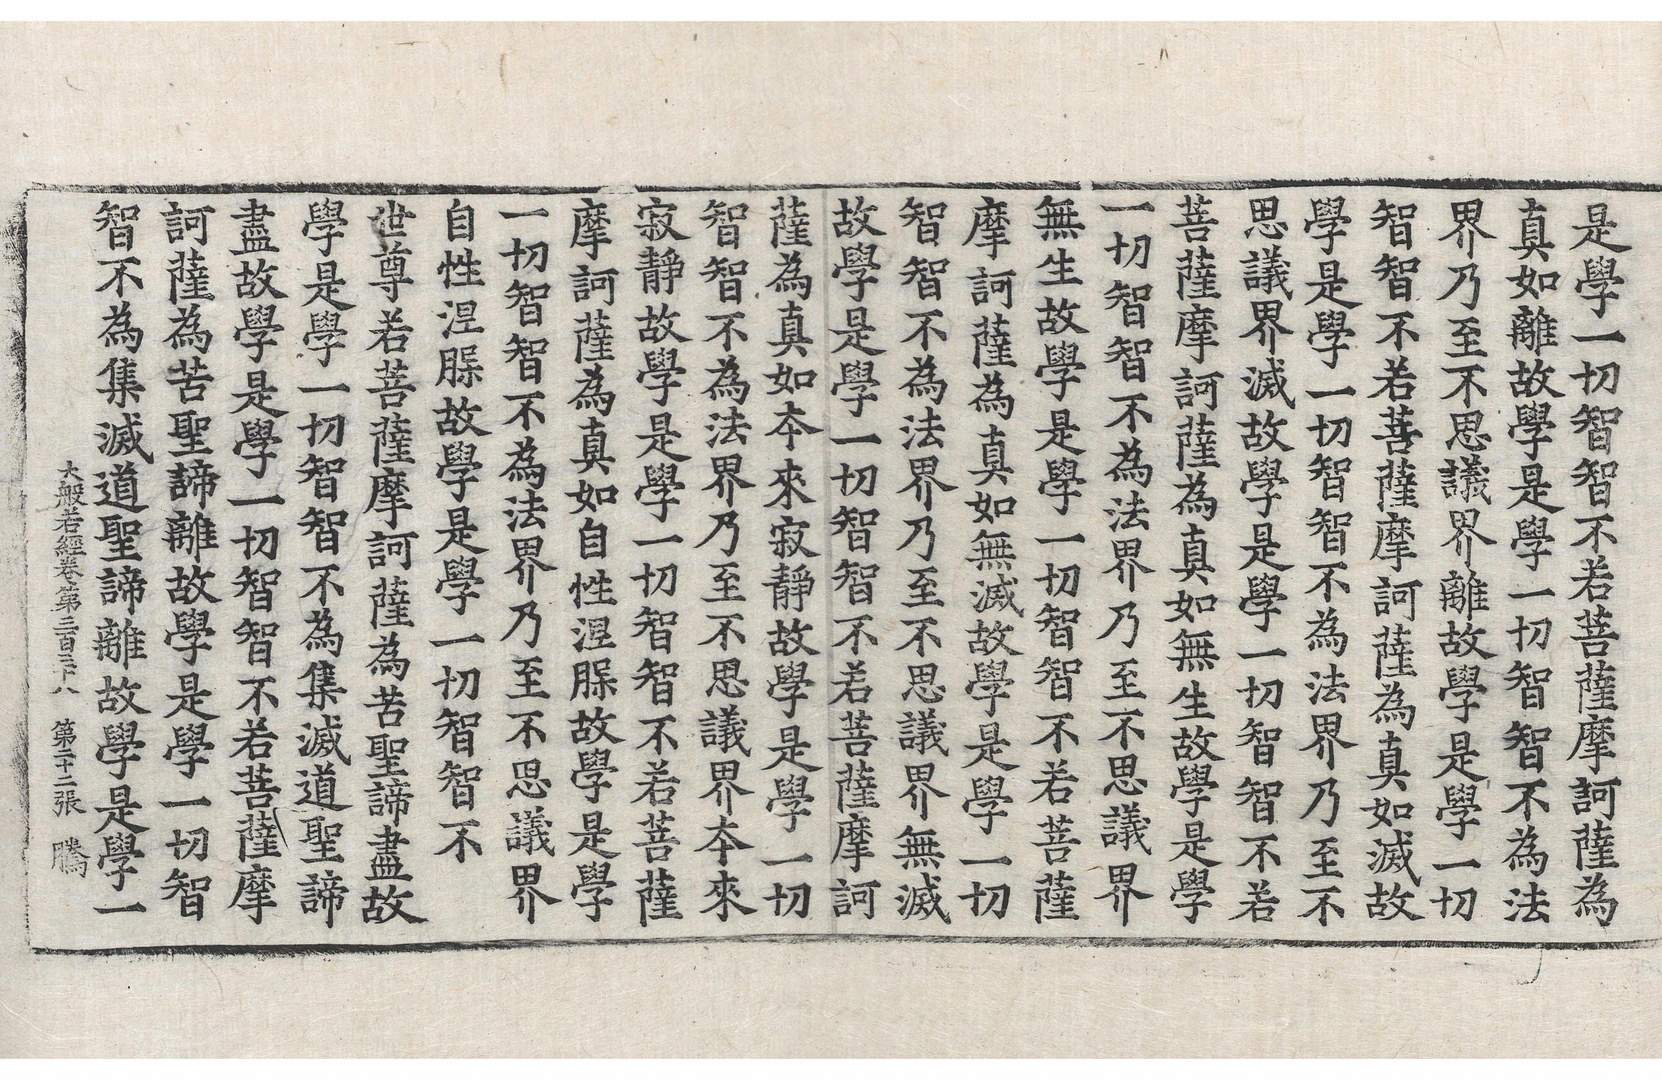 是學一切智智不若菩薩摩訶薩為
真如離故學是學一切智智不為法
界乃至不思議界離故學是學一切
智智不若菩薩摩訶薩為真如滅故
學是學一切智智不為法界乃至不
思議界滅故學是學一切智智不若
菩薩摩訶薩為真如無生故學是學
一切智智不為法界乃至不思議界
無生故學是學一切智智不若菩薩
摩訶薩為真如無滅故學是學一切
智智不為法界乃至不思議界無滅
故學是學一切智智不若菩薩摩訶
薩為真如夲來寂靜故學是學一切
智智不為法界乃至不思議界夲來
寂靜故學是學一切智智不若菩薩
摩訶薩為真如自性涅槃故學是學
一切智智不為法界乃至不思議界
自性涅槃故學是學一切智智不
世尊若菩薩摩訶薩為苦聖諦盡故
學是學一切智智不為集滅道聖諦
盡故學是學一切智智不若菩薩摩
訶薩為苦聖諦離故學是學一切智
智不為集滅道聖諦離故學是學一
大般若經卷第三百三十八 第二十二張 騰